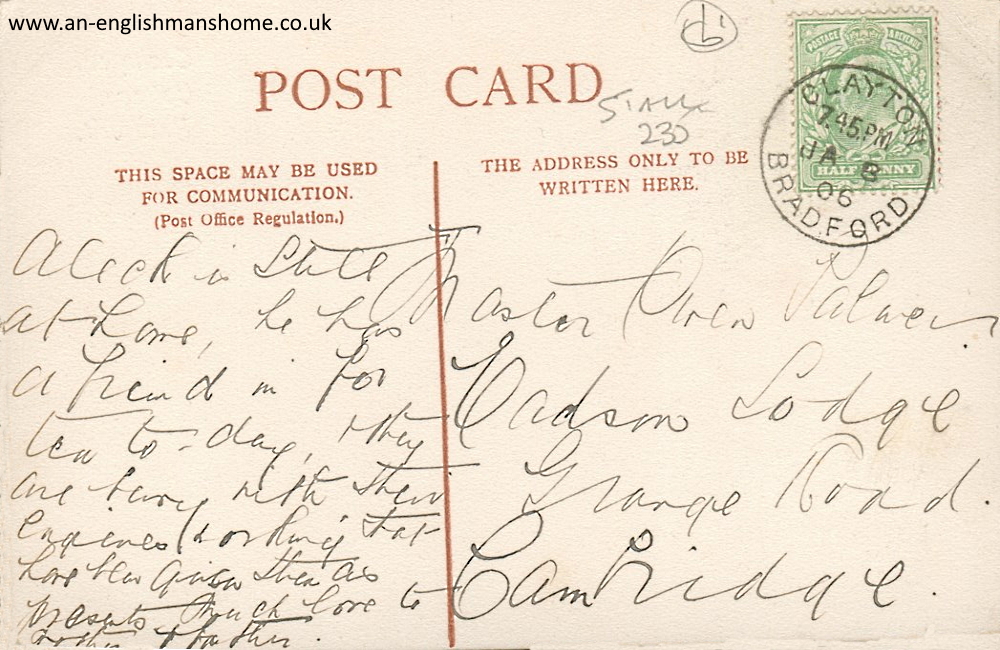 www.an-englishmanshome.co.uk
POST CARD
STALL
230
THIS SPACE MAY BE USED
FOR COMMUNICATION.
(Post Office Regulation.)
THE ADDRESS ONLY TO BE
WRITTEN HERE.
POSTAGE & REVENUE
HALFPENNY
CLAYTON
7.45 PM
JA 8
06
BRADFORD
Aleck is still
at home, he has
a friend in for
tea to-day, they
are busy with their
engines (working) that
have been given them as
presents. Much love to
mother & father.
Master Owen Palmer
Lodge
Grange Road.
Cambridge.